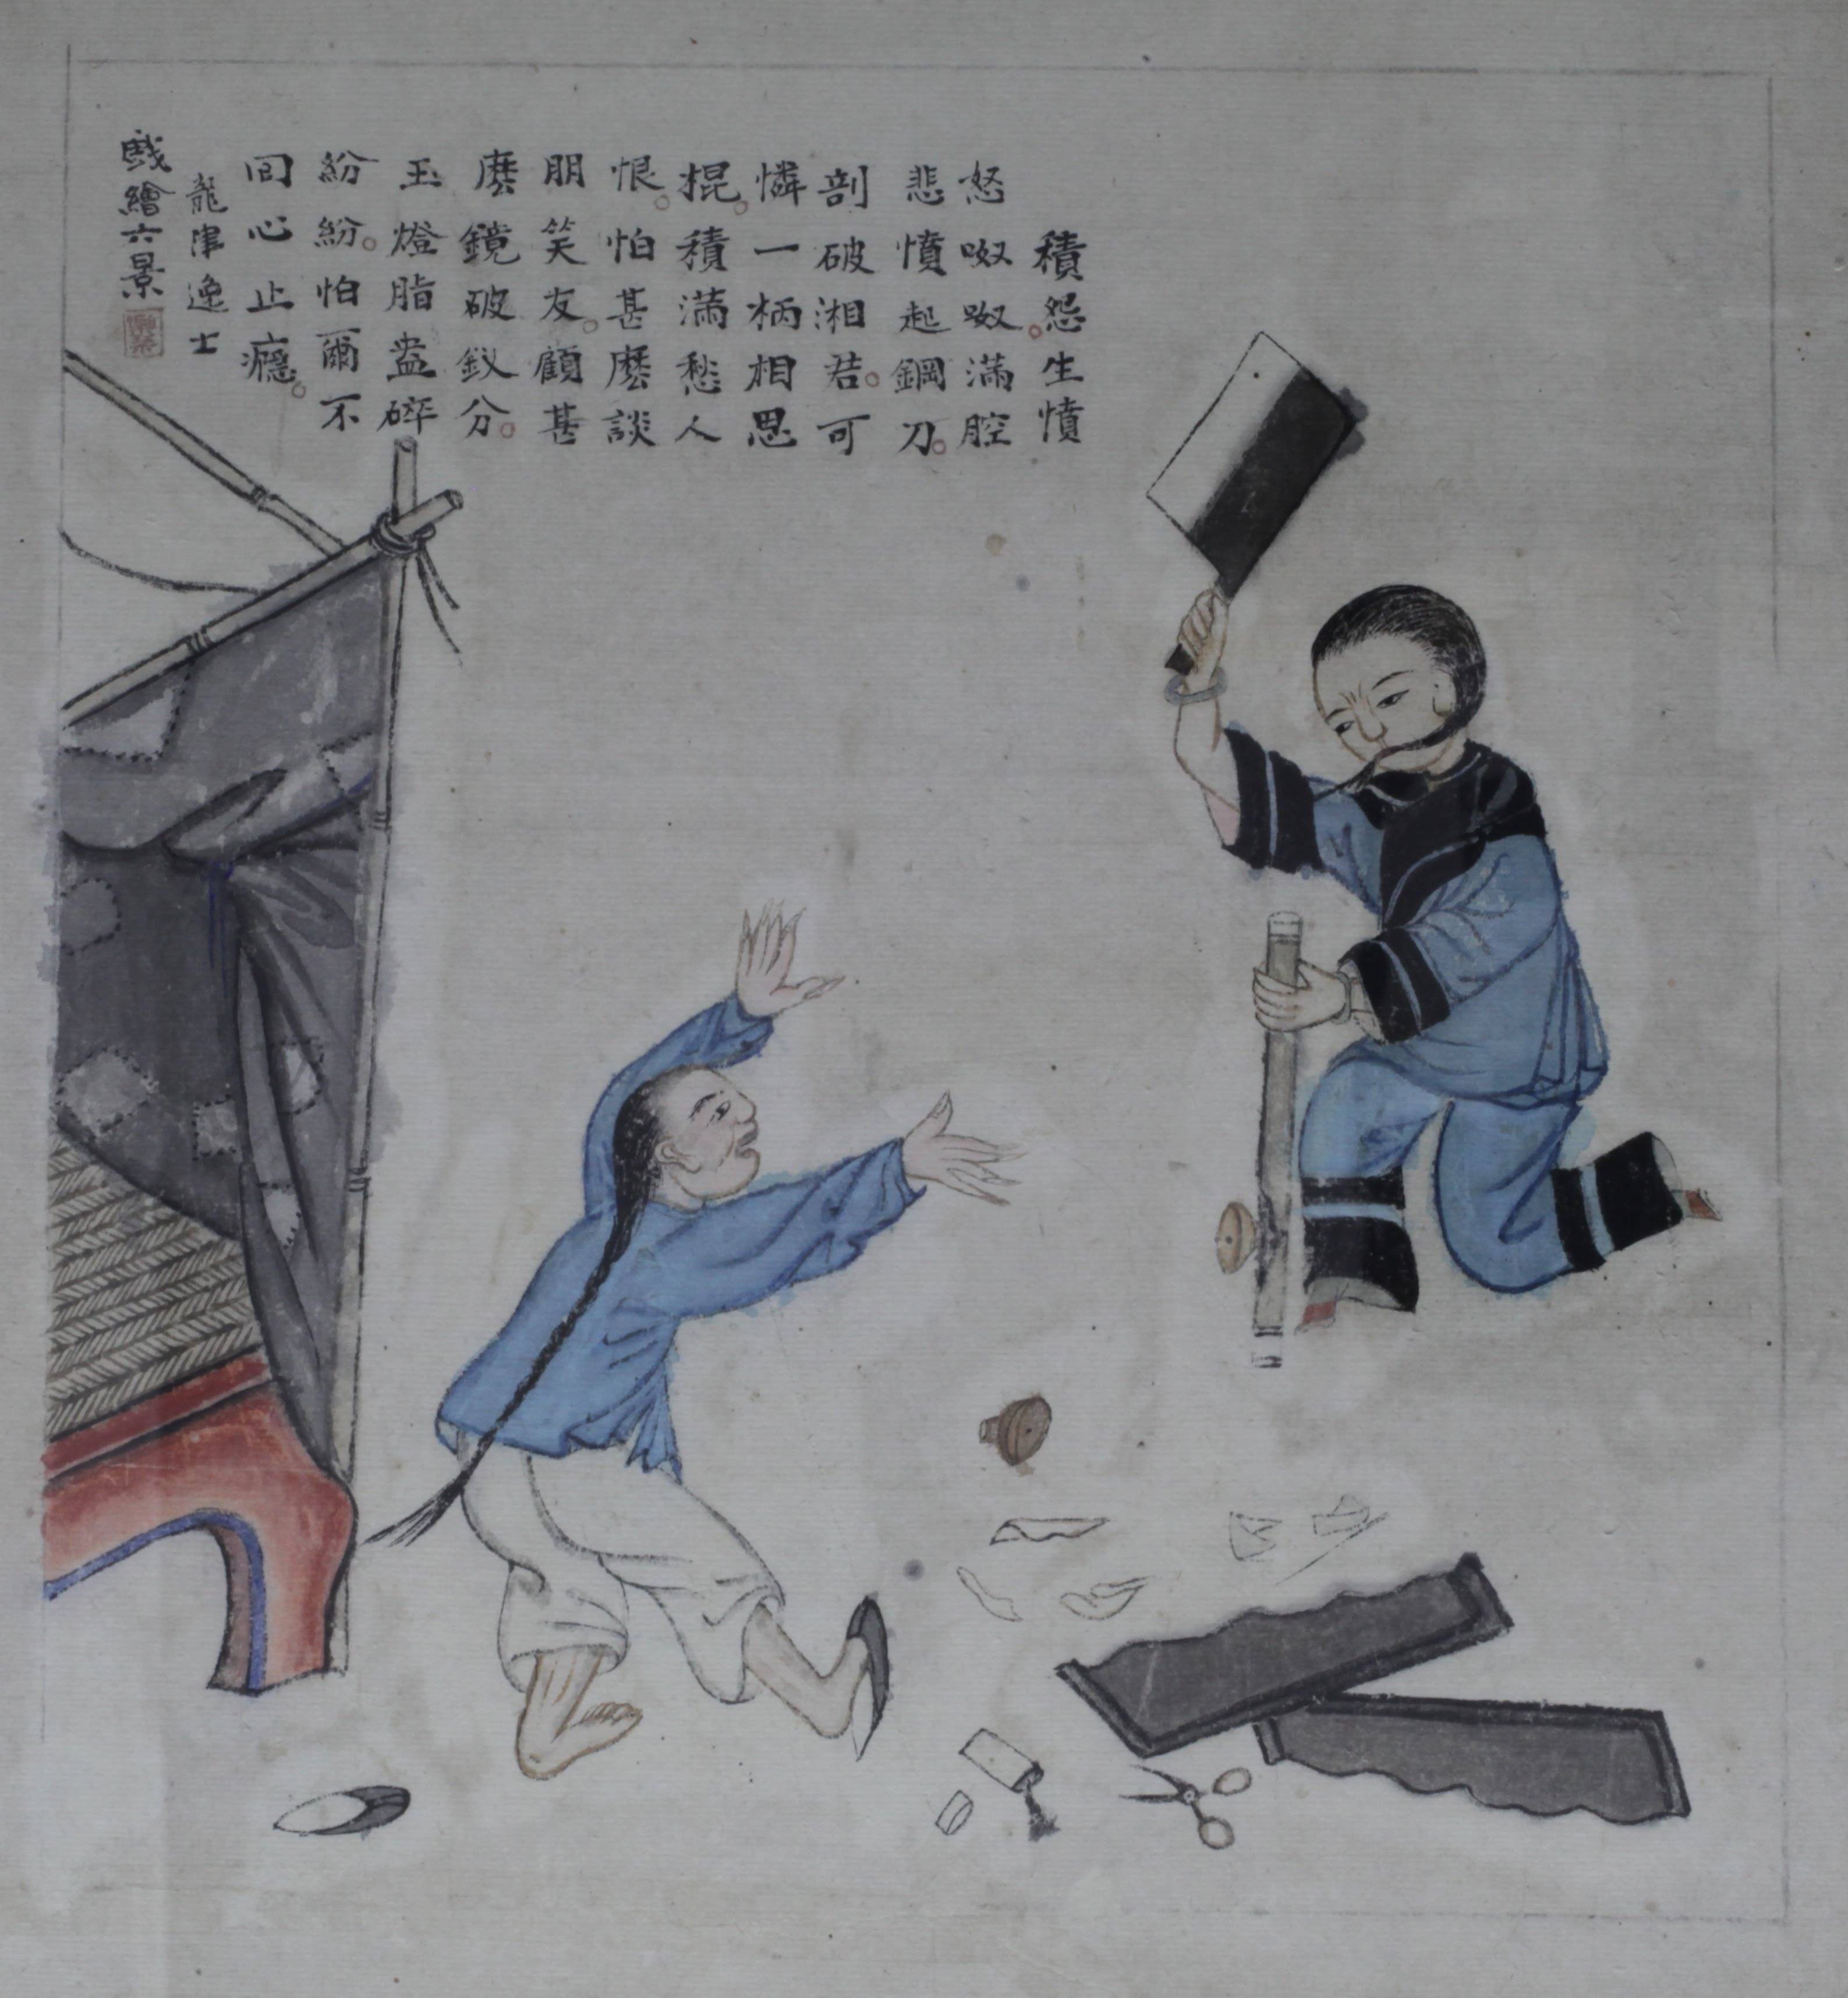 積怨生憤
怒呶呶。滿腔
悲憤起鋼刀。
剖破湘君。可
憐一柄相思
棍。積滿愁人
恨。怕甚麼談
朋笑友。顧甚
麼鏡破釵分。
玉燈脂盎碎
紛紛。怕爾不
囘心止癮。
龍津逸士
戲繪六景